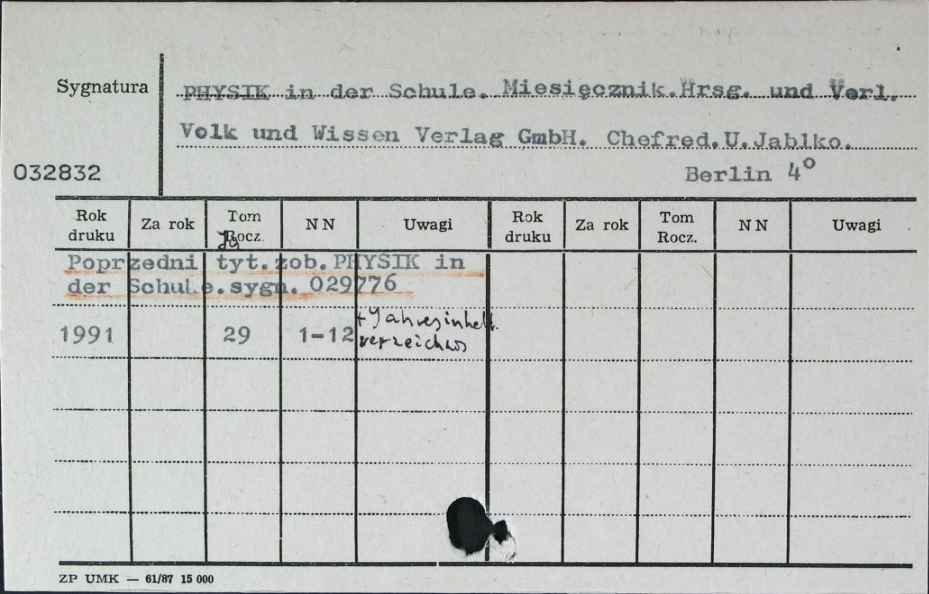 Sygnatura
PHYSIK in der Schule. Miesięcznik.Hrsg. und Verl.
Volk und Wissen Verlag GmbH. Chefred.U.Jablko.
032832
Berlin 4°
Rok druku Za rok Tom Rocz. NN Uwagi Rok druku Za rok Tom Rocz. NN Uwagi
Jg
Poprzedni tyt.zob.PHYSIK in
der Schule.sygn. 029776
1991 29 1-12 + Jahresinhalt.
verzeichnis
ZP UMK — 61/87 15 000